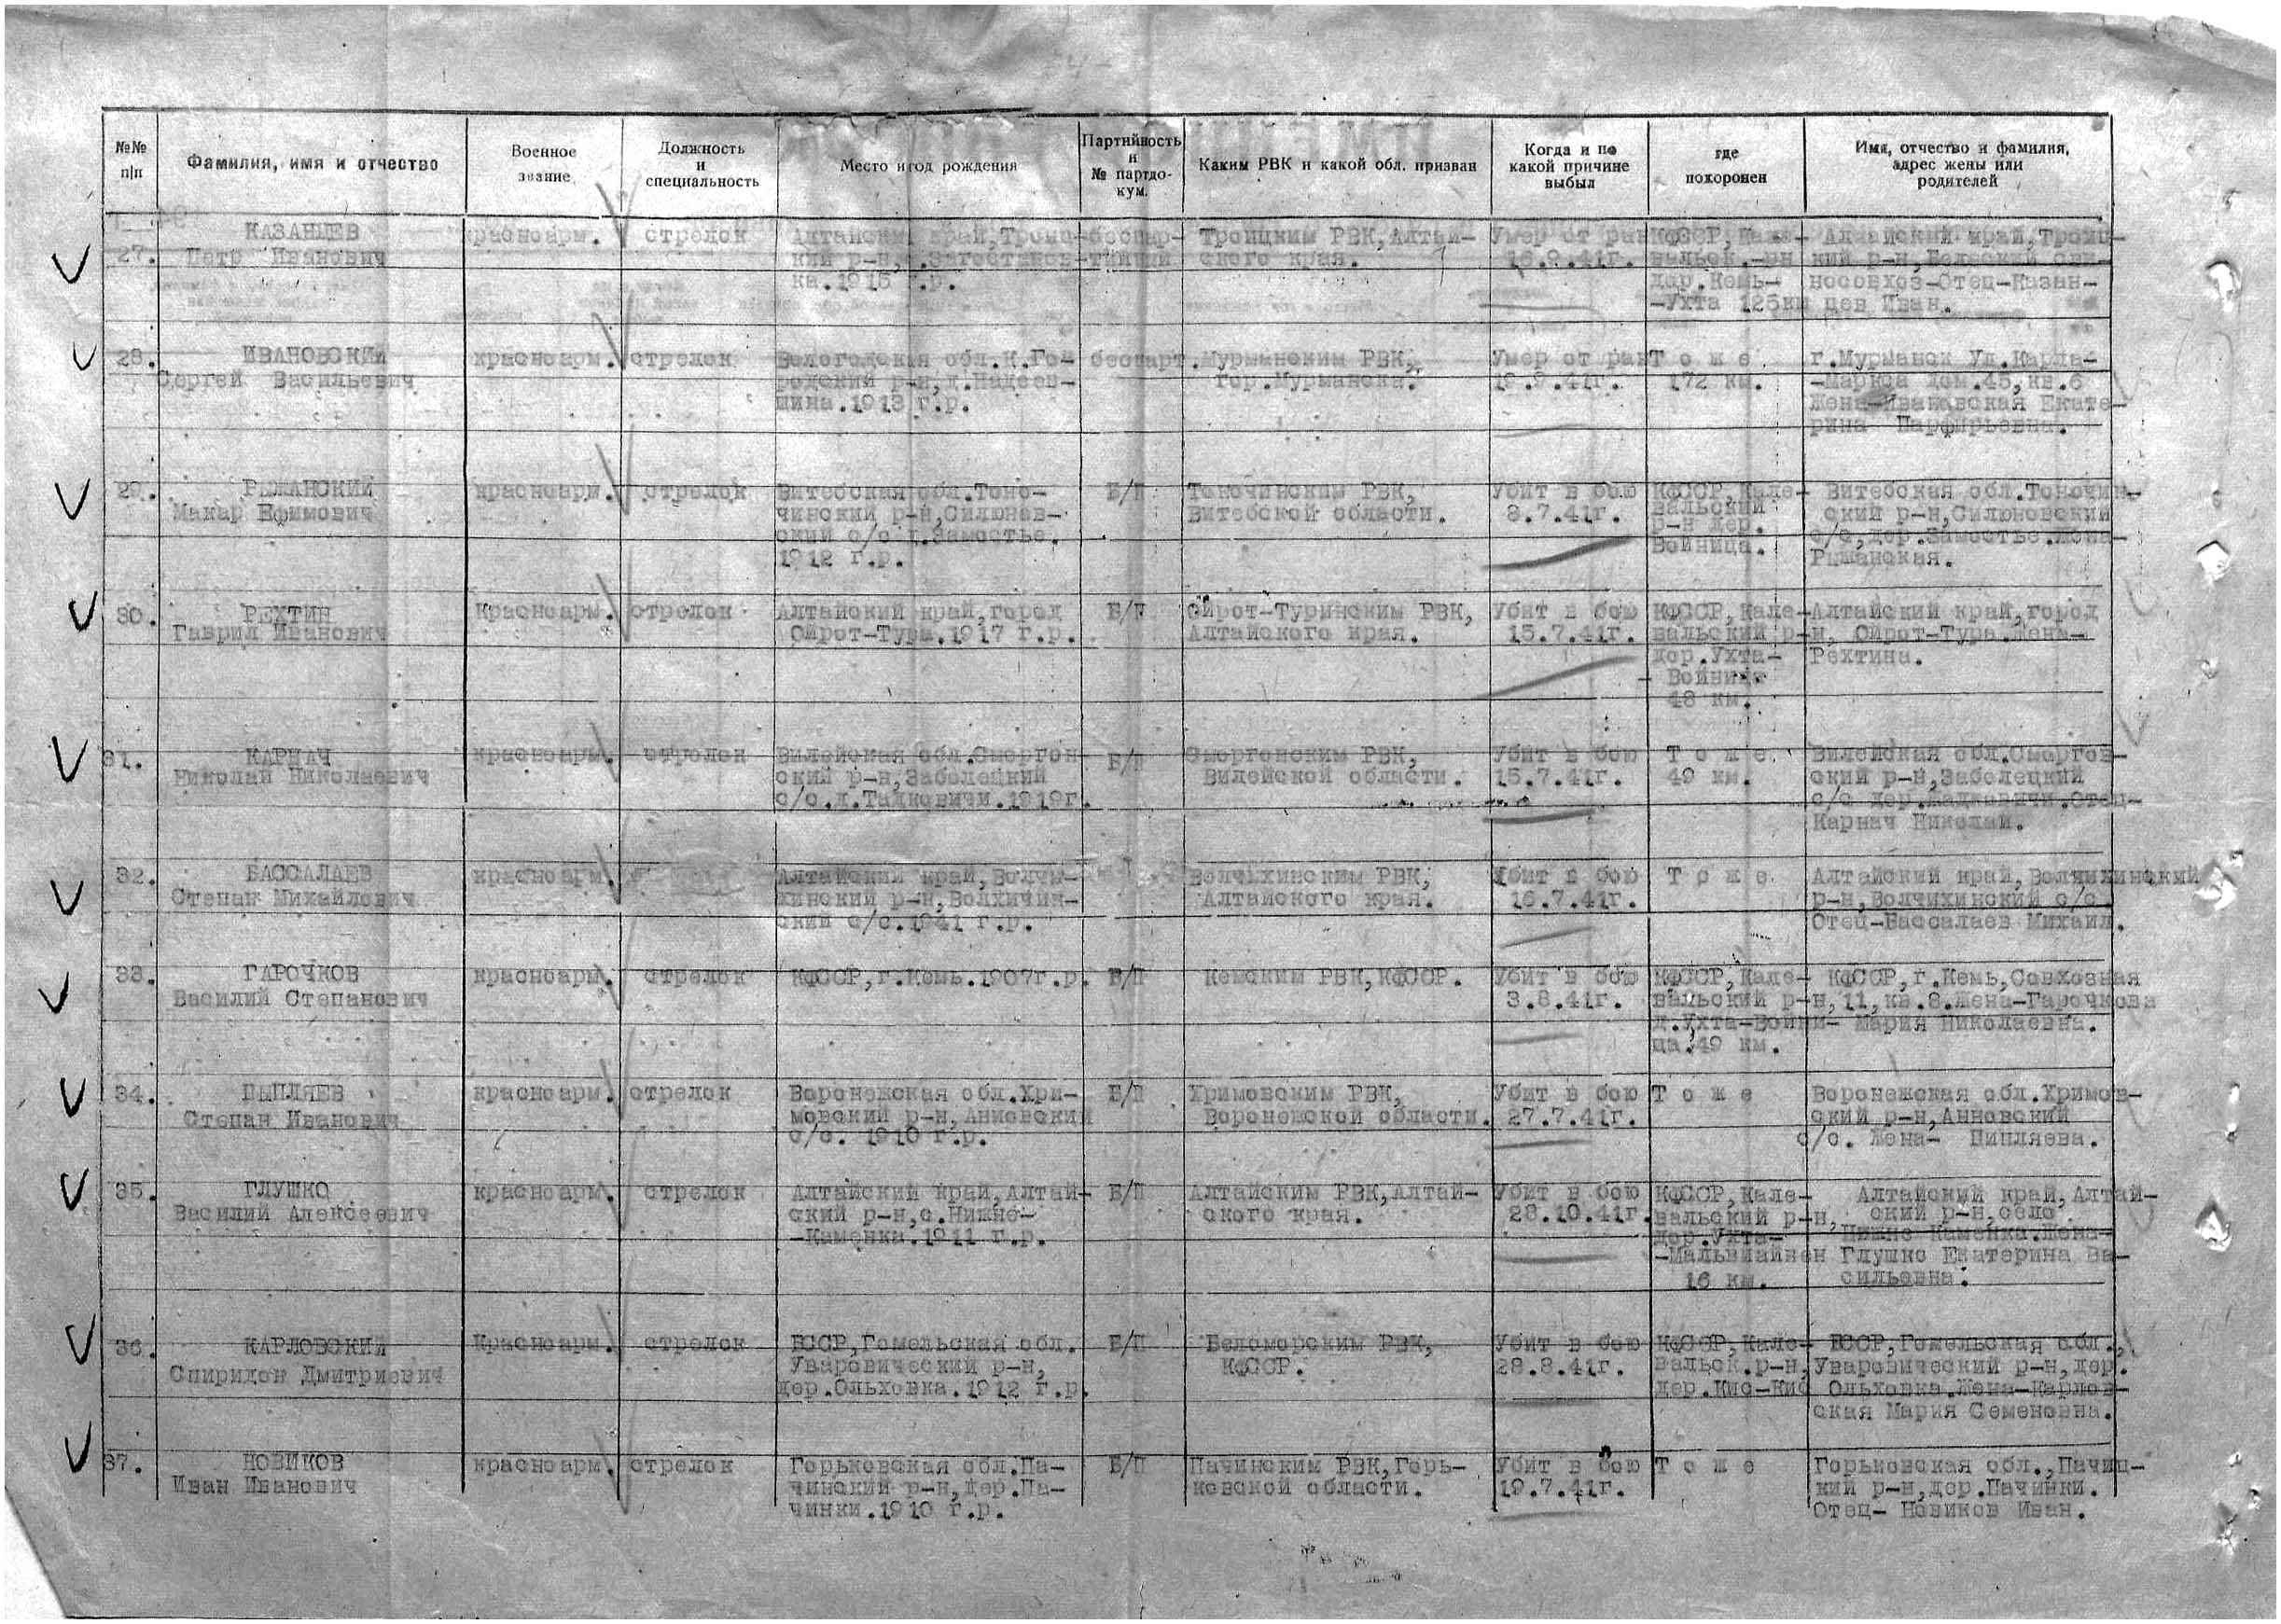 №№ п|п
Фамилия, имя и отчество
Военное звание
Должность и специальность
Место и год рождения
Партийность и № партдокум.
Каким РВК и какой обл. призван
Когда и по какой причине выбыл
где похоронен
Имя, отчество и фамилия, адрес жены или родителей
27.
КАЗАНЦЕВ
Петр Иванович
красноарм.
стрелок
Алтайский край, Троиц-
кий р-н,
ка.1915 г.р.
беспар-
тийный
Троицким РВК, Алтай-
ского края.
Умер от ран
16.9.41г.
КФССР, Кале-
вальск.-рн
дер.Кемь-
-Ухта 125км
Алтайский край, Троиц-
кий р-н,
носовхоз-Отец-Казан-
цев Иван.
28.
ИВАНОВСКИЙ
Сергей Васильевич
красноарм.
стрелок
Вологодская обл.К.Го-
родский р-н, д.Надеев-
щина.1913 г.р.
беспарт.
Мурманским РВК,
гор.Мурманска.
Умер от ран
19.9.41г.
Т о ж е
172 км.
г.Мурманск Ул.Карла-
-Маркса дом.45, кв.6
Жена-Ивановская Екате-
рина Парфирьевна.
29.
РЫЖАНСКИЙ
Макар Ефимович
красноарм.
стрелок
Витебская обл.Толо-
чинский р-н, Силюнов-
ский с/с д.Замостье.
1912 г.р.
Б/П
Толочинским РВК,
Витебской области.
Убит в бою
8.7.41г.
КФССР, Кале-
вальский
р-н дер.
Войница.
Витебская обл.Толочин-
ский р-н, Силюновский
с/с, дер.Замостье.Жена-
Рыжанская.
30.
РЕХТИН
Гаврил Иванович
Красноарм.
стрелок
Алтайский край, город
Ойрот-Тура.1917 г.р.
Б/П
Ойрот-Туринским РВК,
Алтайского края.
Убит в бою
15.7.41г.
КФССР, Кале-
вальский р-н,
дер.Ухта-
- Войница
48 км.
Алтайский край, город
Ойрот-Тура.Жена-
Рехтина.
31.
КАРНАЧ
Николай Николаевич
красноарм.
стрелок
Вилейская обл.Сморгон
ский р-н, Заболецкий
с/с.д. 1919г.
Б/П
Сморгонским РВК,
Вилейской области.
Убит в бою
15.7.41г.
Т о ж е.
49 км.
Вилейская обл.Сморгон-
ский р-н, Заболецкий
с/с дер. Отец-
Карнач Николай.
32.
БАССАЛАЕВ
Степан Михайлович
красноарм.
Алтайский край, Волчи-
хинский р-н, Волхичин-
ский с/с.1941 г.р.
Волчихинским РВК,
Алтайского края.
Убит в бою
16.7.41г.
Т о ж е
Алтайский край, Волчихинский
р-н, Волчихинский с/с.
Отец-Бассалаев Михаил.
33.
ГАРОЧКОВ
Василий Степанович
красноарм.
стрелок
КФССР, г.Кемь.1907г.р.
Б/П
Кемским РВК, КФССР.
Убит в бою
3.8.41г.
КФССР, Кале-
вальский р-н,
д.Ухта-Войни-
ца.49 км.
КФССР, г.Кемь, Совхозная
11, кв.8.Жена-Гарочкова
Мария Николаевна.
34.
ПЫПЛЯЕВ
Степан Иванович
красноарм.
стрелок
Воронежская обл.Хри-
мовский р-н, Анновский
с/с. 1910 г.р.
Б/П
Хримовским РВК,
Воронежской области.
Убит в бою
27.7.41г.
Т о ж е
Воронежская обл.Хримов-
ский р-н, Анновский
с/с. Жена- Пипляева.
35.
ГЛУШКО
Василий Алексеевич
красноарм.
стрелок
Алтайский край, Алтай-
ский р-н, с.Нижне-
-Каменка.1911 г.р.
Б/П
Алтайским РВК, Алтай-
ского края.
Убит в бою
28.10.41г.
КФССР, Кале-
вальский р-н,
дер.Ухта-
-Мальвиайнен
16 км.
Алтайский край, Алтай-
ский р-н, село
Нижне Каменка.Жена-
Глушко Екатерина Ва-
сильевна.
36.
КАРЛОВСКИЙ
Спиридон Дмитриевич
Красноарм.
стрелок
БССР, Гомельская обл.
Уваровический р-н,
дер.Ольховка.1912 г.р.
Б/П
Беломорским РВК,
КФССР.
Убит в бою
28.8.41г.
КФССР, Кале-
вальск.р-н,
дер.Кис-Кис
БССР, Гомельская обл.,
Уваровический р-н, дер.
Ольховка.Жена-Карлов-
ская Мария Семеновна.
37.
НОВИКОВ
Иван Иванович
красноарм.
стрелок
Горьковская обл.Па-
чинский р-н, дер.Па-
чинки.1910 г.р.
Б/П
Пачинским РВК, Горь-
ковской области.
Убит в бою
19.7.41г.
Т о ж е
Горьковская обл., Пачин-
кий р-н, дер.Пачинки.
Отец- Новиков Иван.